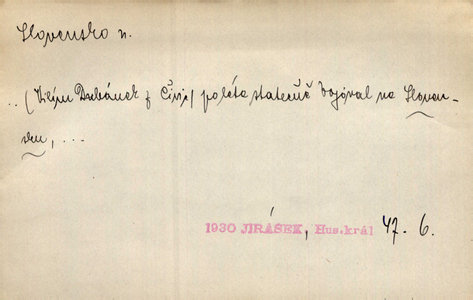 Slovensko n.
.. (Vilém Drbánek z Čivic) po léta statečně bojoval na Sloven-
sku, ...
1930 JIRÁSEK, Hus.král 47. 6.